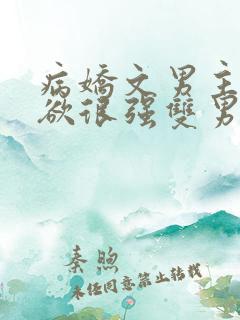 病嬌文男主
欲很强雙男
秦煦
未经同意禁止转载